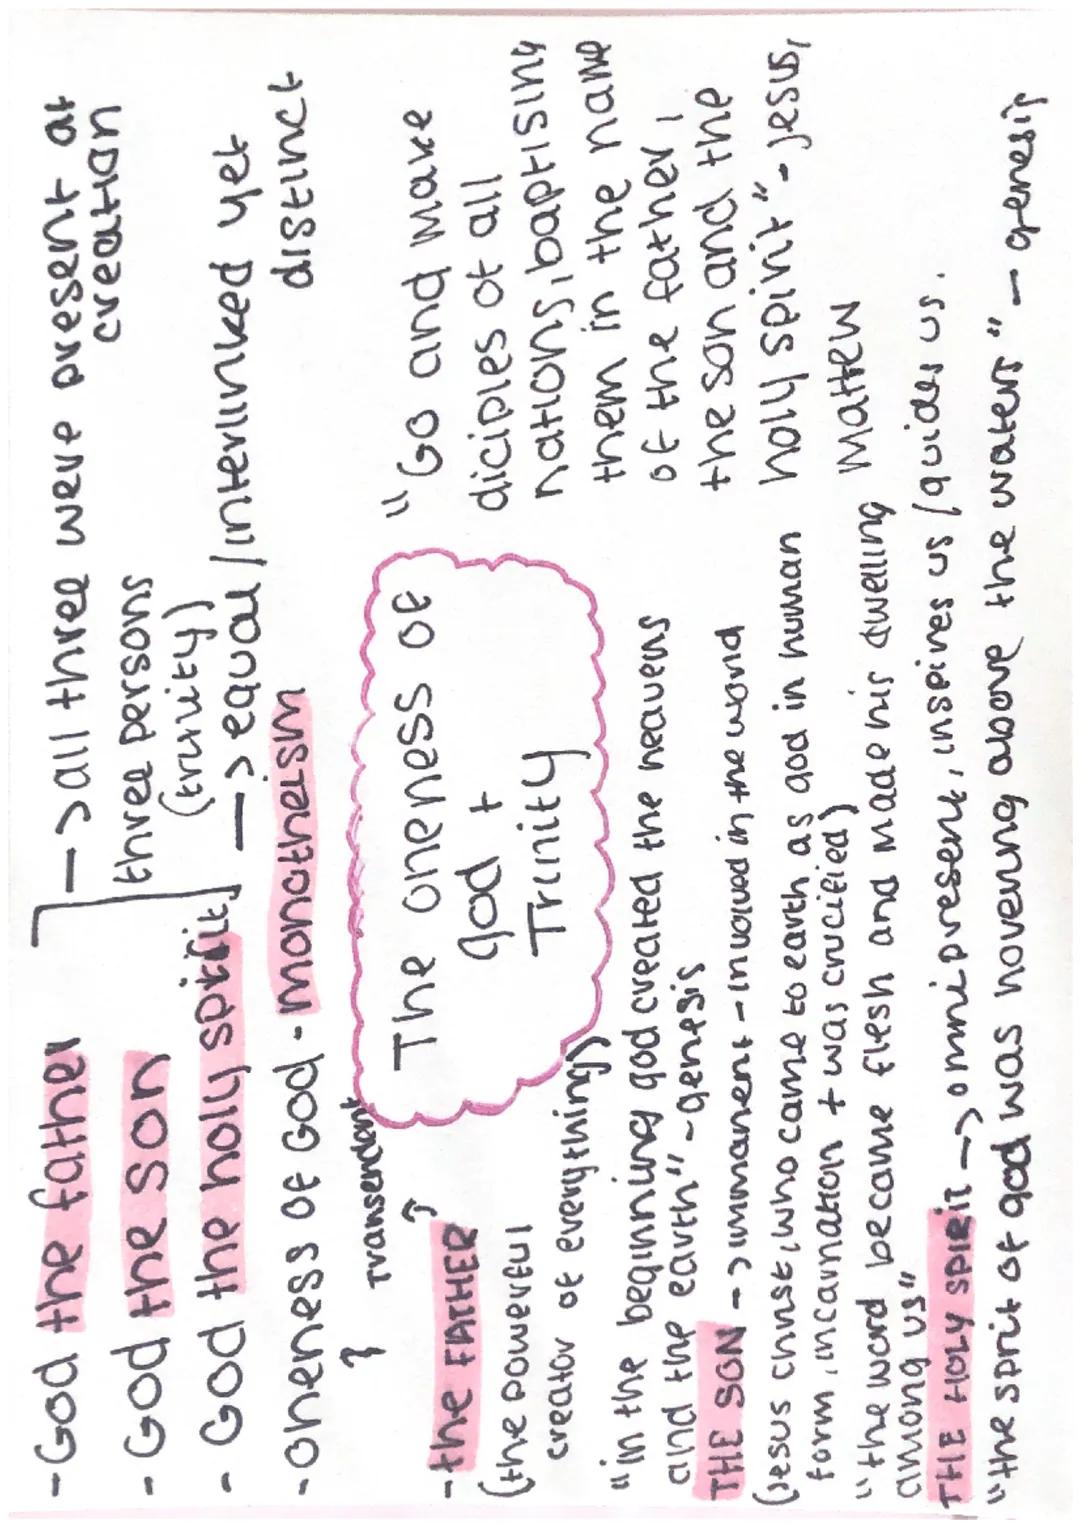 -God the father
- God the son
- God the holly spirit
-> all three were present at
creation
three persons
(trinity)
-> equal/interlinked yet
distinct
-oneness of God - monotheism
The oneness of
god +
Trinity
Transendent
-the FATHER
(the powerful
creator of everything)
"in the beginning god created the heavens
and the earth" - genesis
"Go and make
diciples of all
nations, baptising
them in the name
of the father,
the son and the
holly spirit" - Jesus,
Mattew
THE SON -> immanent - involved in the world
(Jesus christ, who came to earth as god in human
form, incarnation + was crucified)
"the word became flesh and made his dwelling
among us"
THE HOLY SPIRIT -> omnipresent, inspires us/guides us.
"the sprit of god was hovering above the waters" - genesis